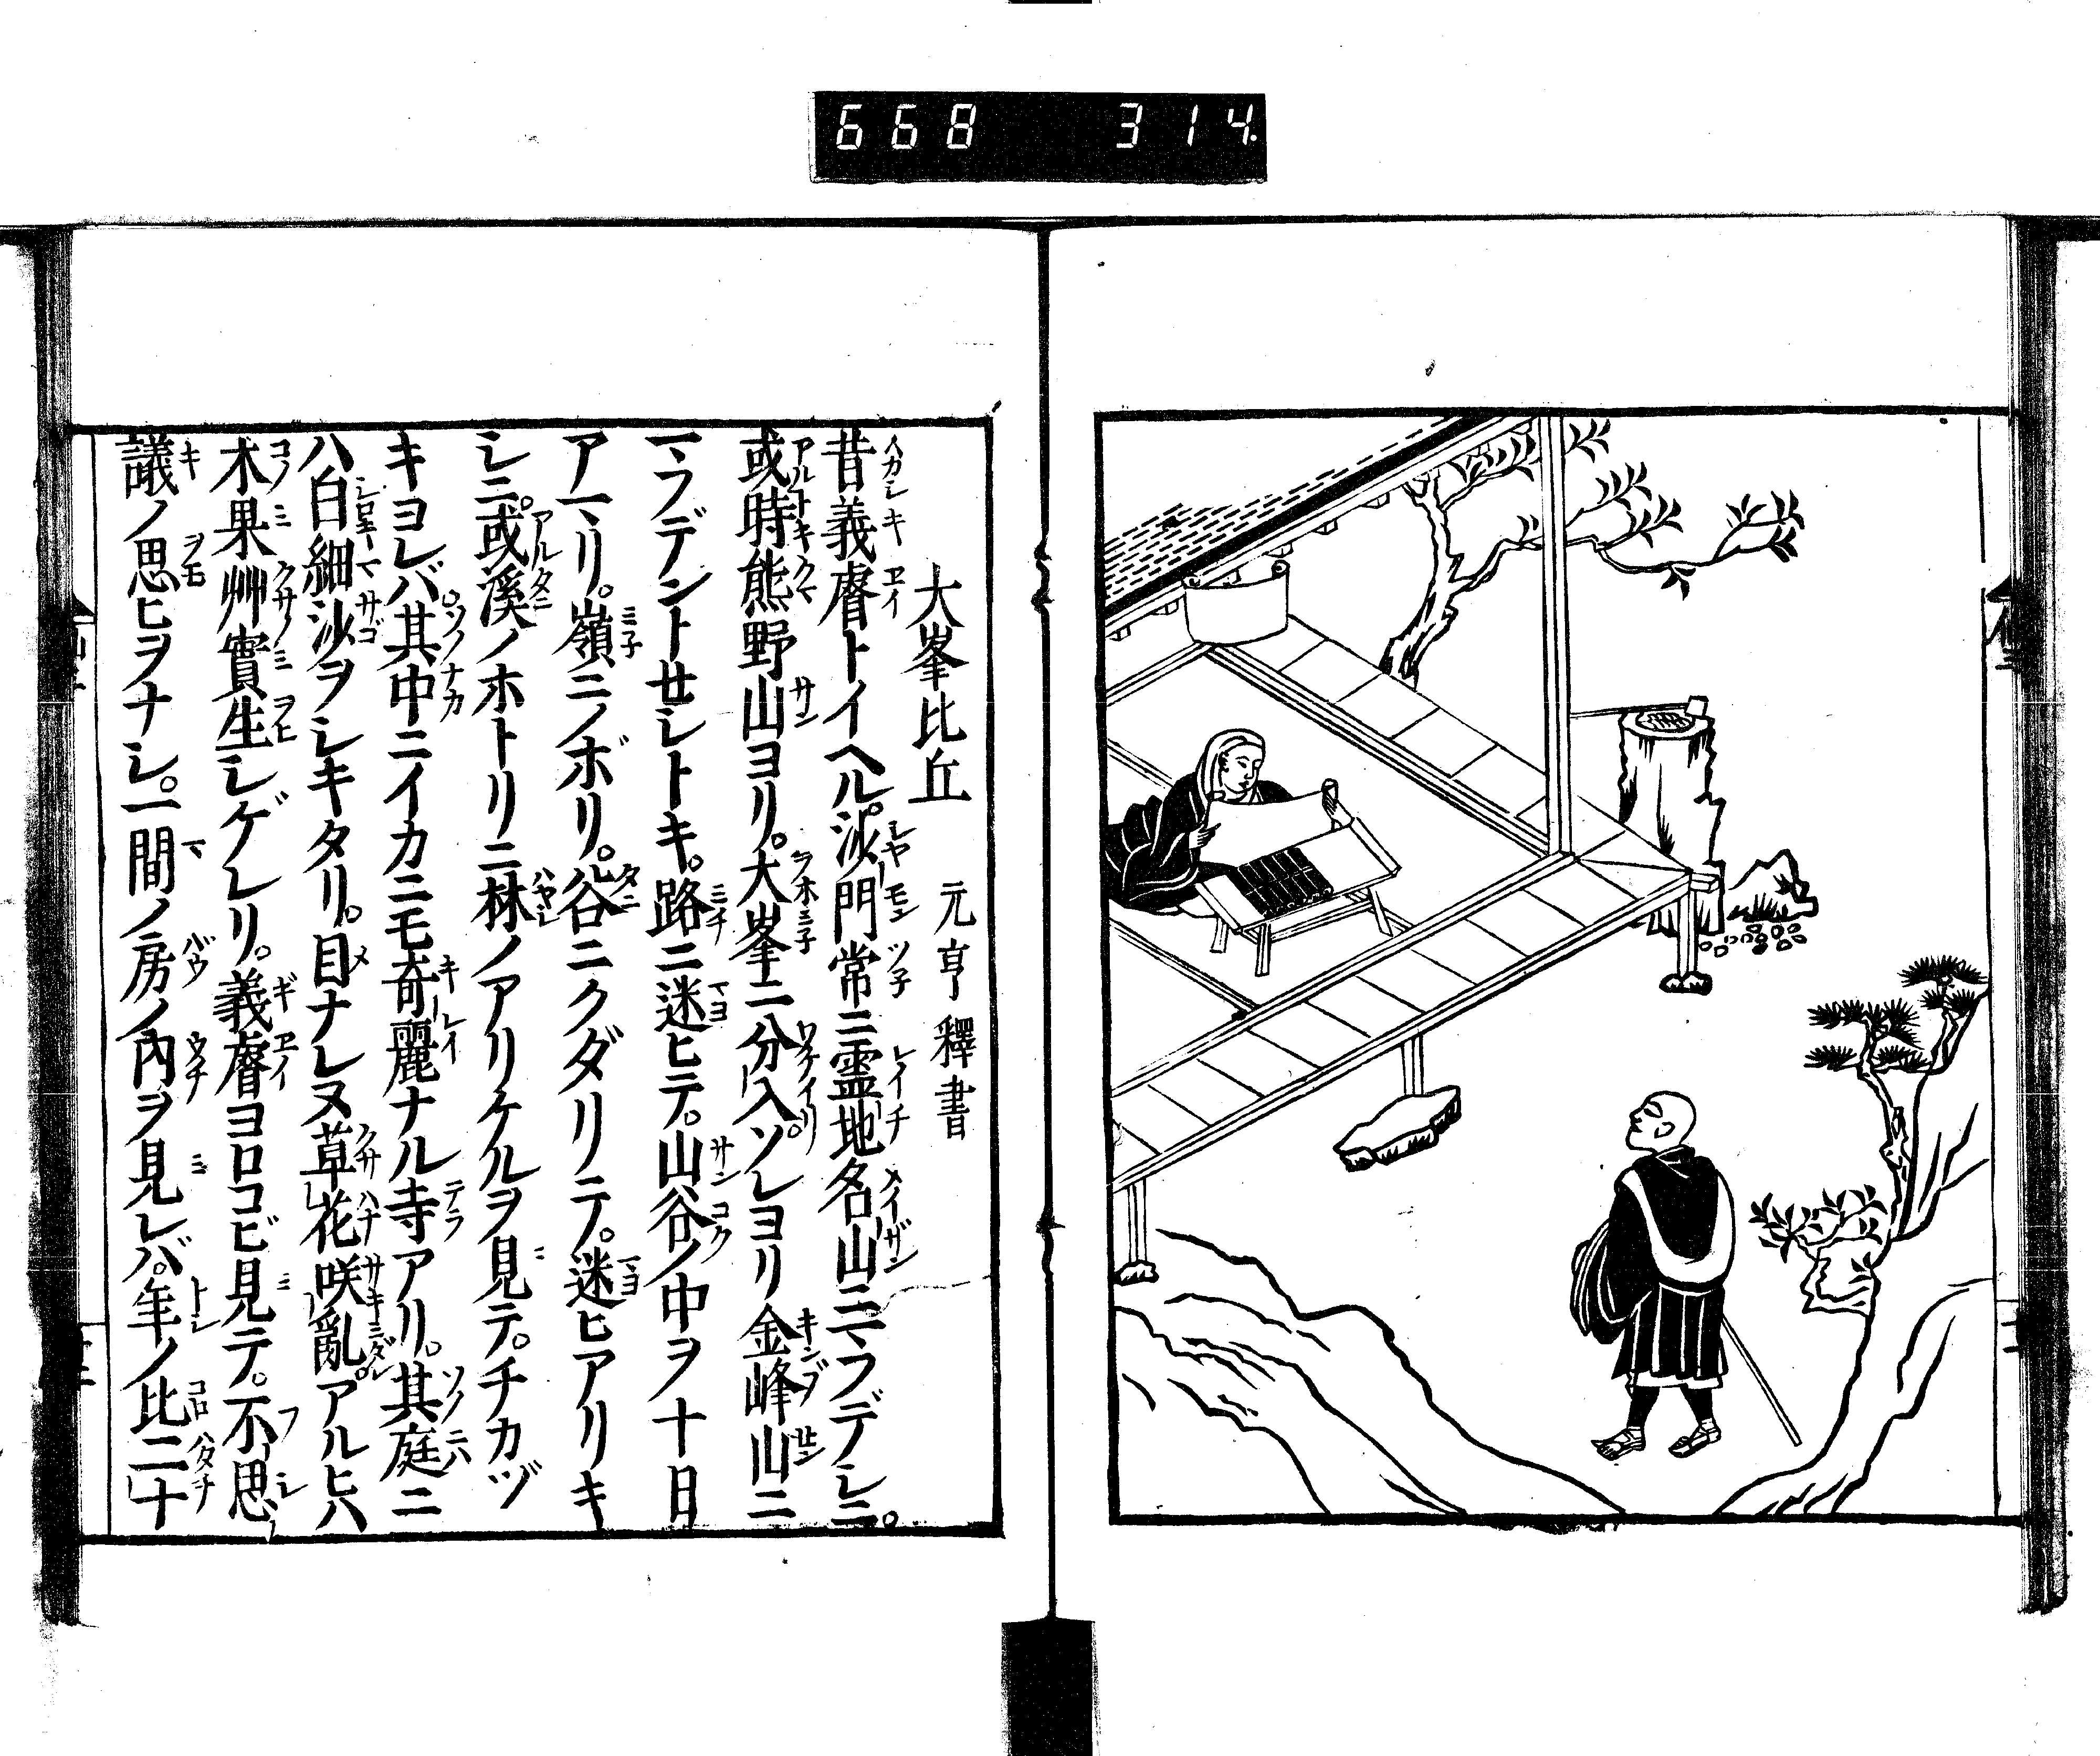 668 314
大峯比丘 元亨釋書
昔義睿トイヘル。沙門常ニ霊地名山ニマフデシニ。
或時熊野山ヨリ。大峯ニ分入。ソレヨリ金峰山ニ
マフデント世シトキ。路ニ迷ヒテ。山谷ノ中ヲ十日
アマリ。嶺ニノボリ。谷ニクダリテ。迷ヒアリキ
シニ。或溪ノホトリニ林ノアリケルヲ見テ。チカヅ
キヨレバ。其中ニイカニモ奇麗ナル寺アリ。其庭ニ
ハ白細沙ヲシキタリ。目ナレヌ草花咲亂。アルヒハ
木果艸實生シゲレリ。義睿ヨロコビ見テ。不思
議ノ思ヒヲナシ。一間ノ房ノ内ヲ見レバ。年ノ比二十